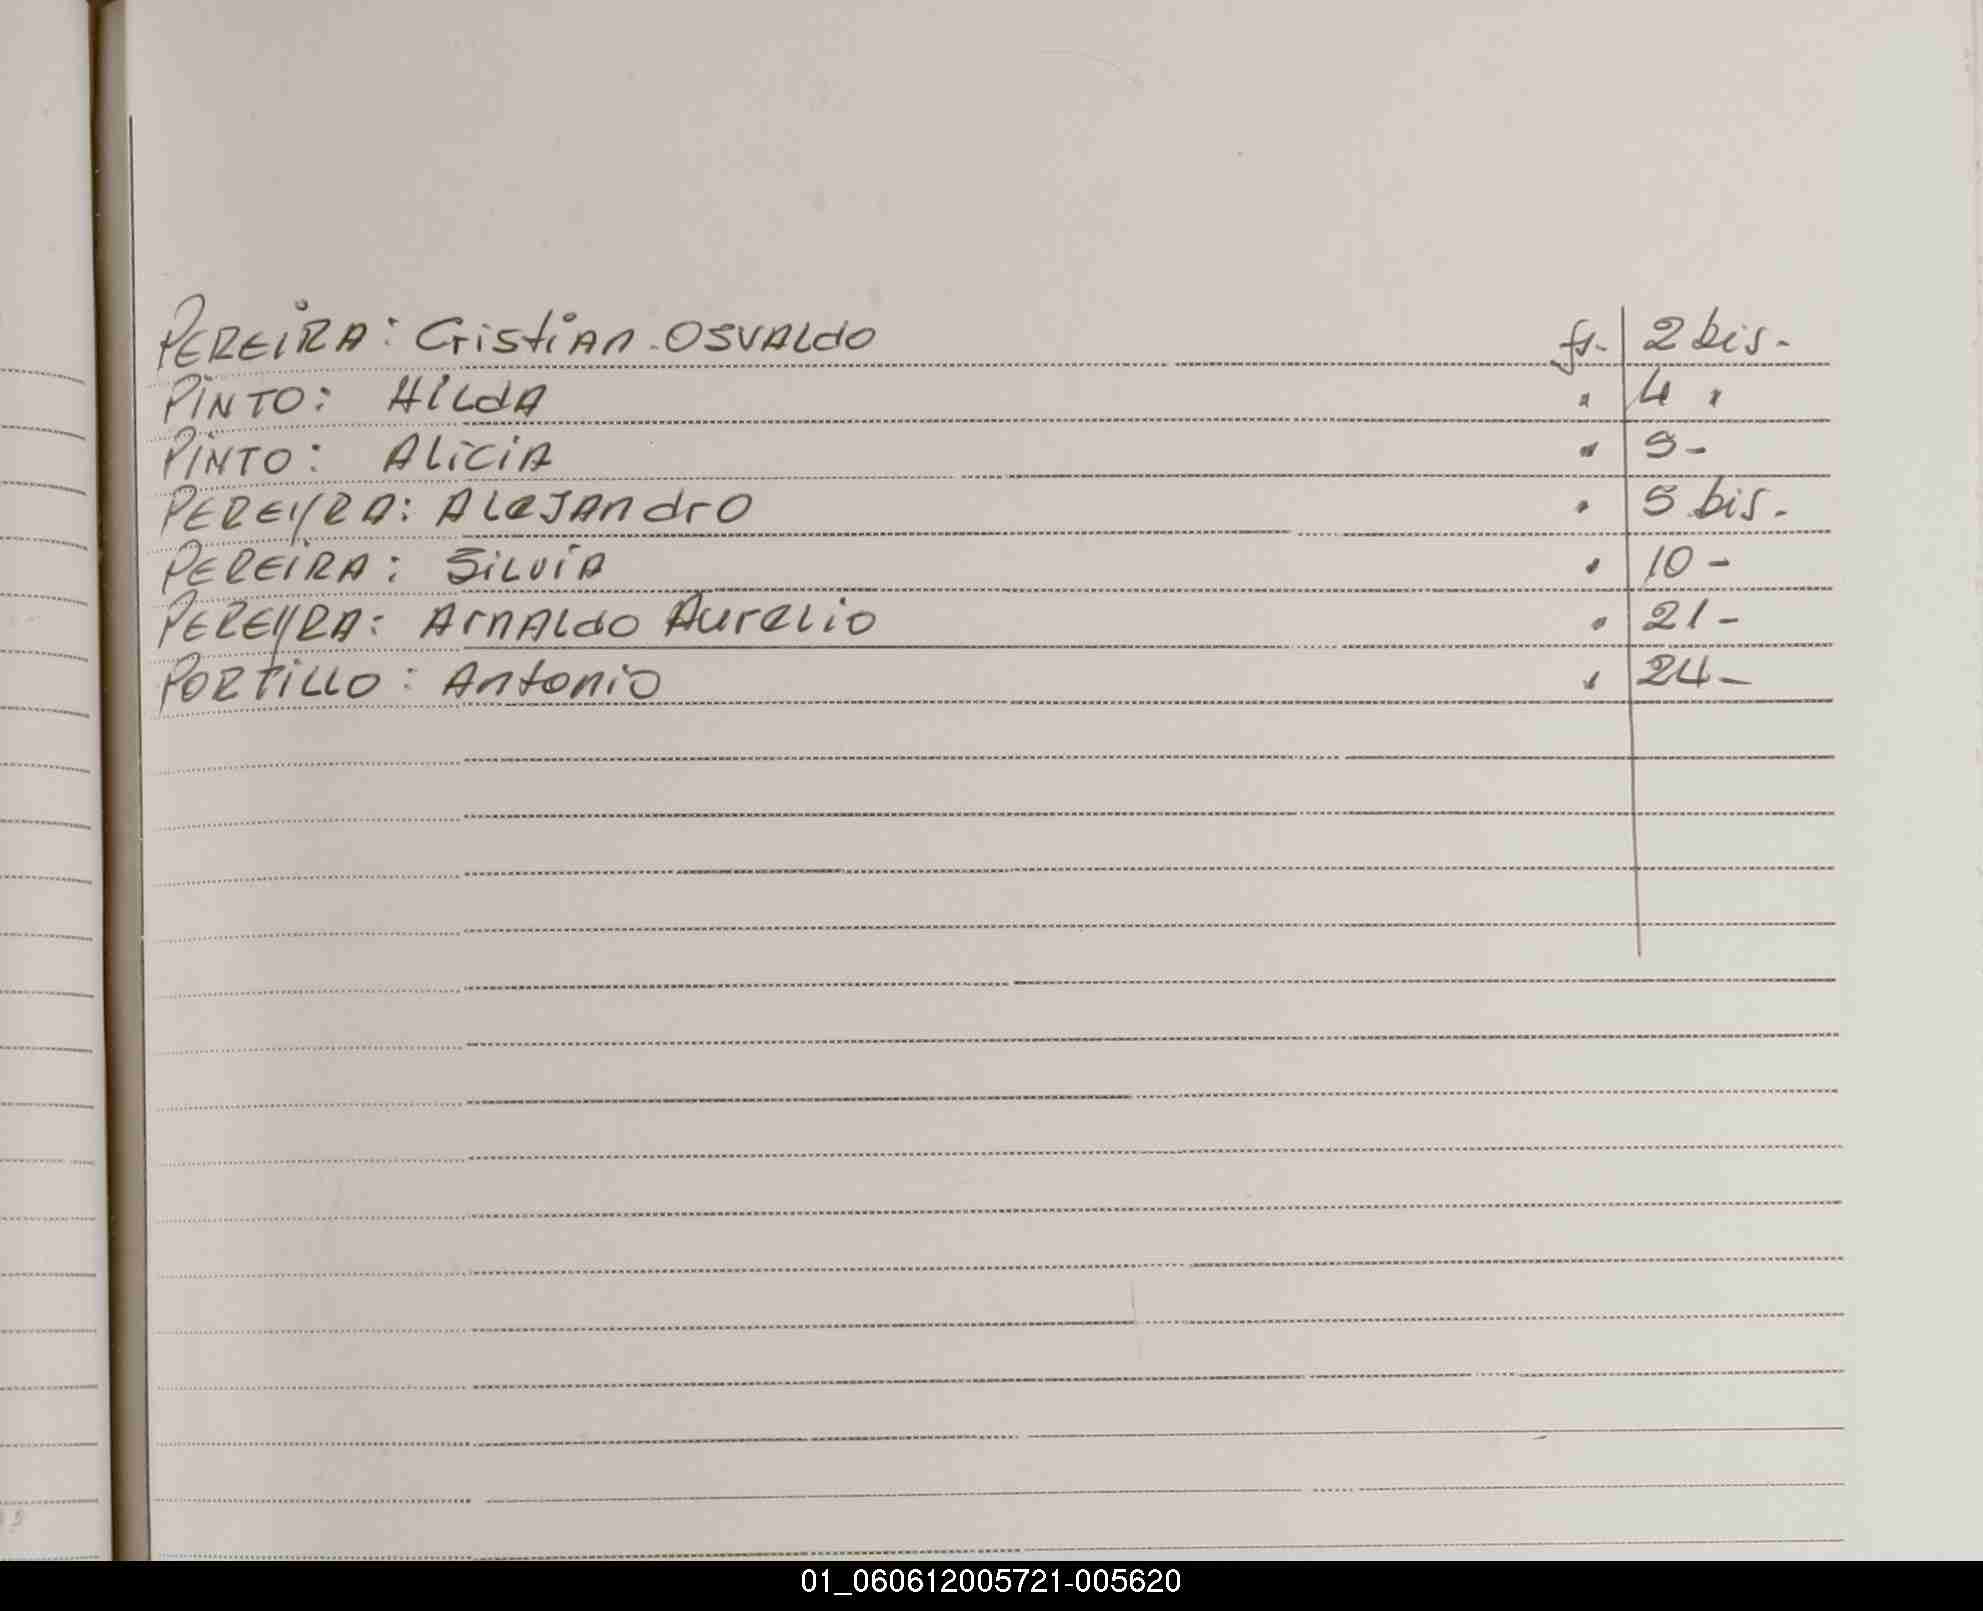 PEREIRA: Cristian Osvaldo fs. 2 bis.
PINTO: Hilda " 4 "
PINTO: Alicia " 5-
PEREYRA: Alejandro " 5 bis.
PEREIRA: Silvia " 10-
PEREYRA: Arnaldo Aurelio " 21-
PORTILLO: Antonio " 24-
01_060612005721-005620